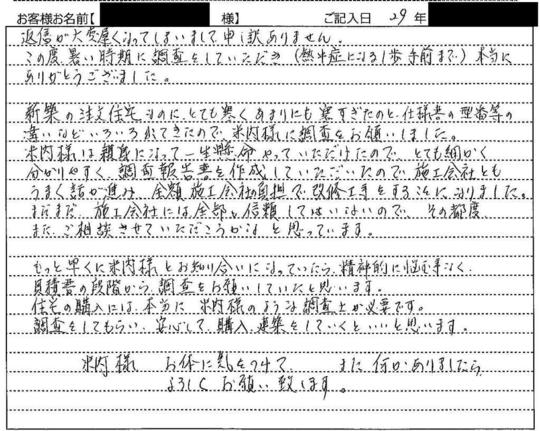 お客様お名前【 様】 ご記入日 29年
返信が大変遅くなってしまいまして申し訳ありません。
この度、暑い時期に調査をしていただき（熱中症になる1歩手前まで）本当に
ありがとうございました。
新築の注文住宅なのに、とても寒くあまりにも寒すぎたのと、仕様書の型番等の
違いなどいろいろでてきたので、米内様に調査をお願いしました。
米内様は親身になって一生懸命やっていただけたので、とても細かく
分かりやすく、調査報告書を作成していただいたので、施工会社とも
うまく話が進み、全額施工会社の負担で改修工事をすることになりました。
まだまだ、施工会社には全部を信頼してはいないので、その都度
また、ご相談させていただこうかなと思っています。
もっと早くに米内様とお知り合いになっていたら、精神的に悩む事なく、
見積書の段階から、調査をお願いしていたと思います。
住宅の購入には、本当に米内様のような調査士が必要です。
調査をしてもらい、安心して、購入、建築をしていくといいと思います。
米内様 お体に気をつけて、 また何かありましたら
よろしくお願い致します。